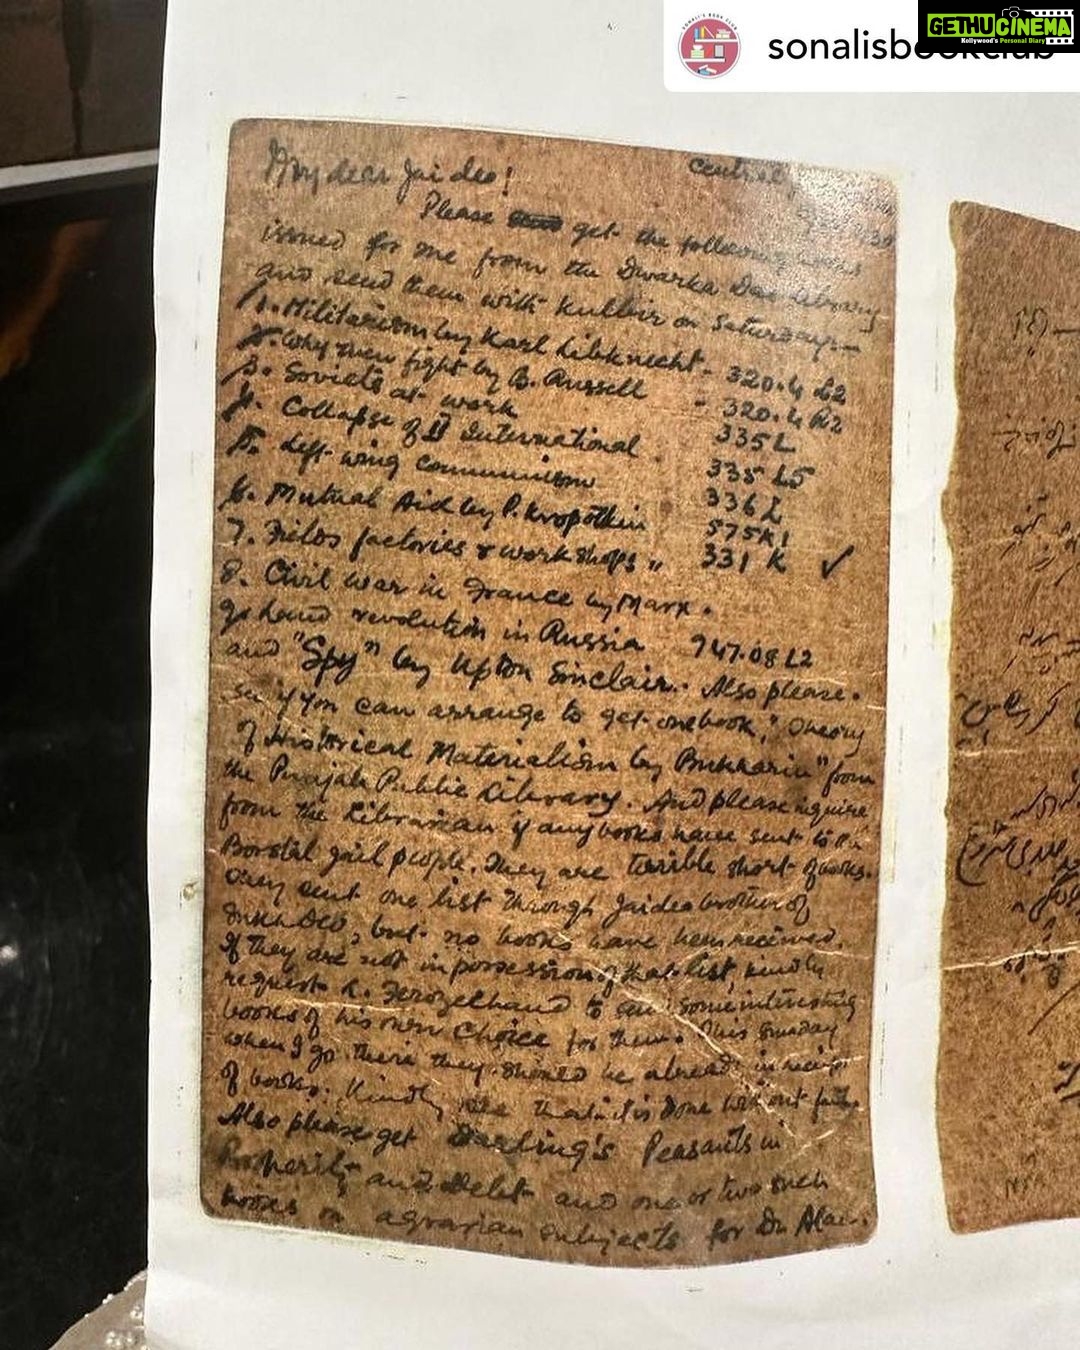 sonalisbookclub
SONALI'S BOOK CLUB
GETHUCINEMA
Kollywood's Personal Diary
My dear Jaideo!
Central
Please get the following books
issued for me from the Dwarka Das Library
and send them with Kulbir on Saturday:—
1. Militarism by Karl Liebknecht - 320.4 L2
2. Why men fight by B. Russell - 320.4 R2
3. Soviets at work 335 L
4. Collapse of II International 335 L5
5. Left wing Communism 336 L
6. Mutual Aid by P. Kropotkin 575 K1
7. Fields factories & workshops " 331 K ✓
8. Civil war in France by Marx.
9. Land revolution in Russia 947.08 L2
and "Spy" by Upton Sinclair. Also please
see if you can arrange to get one book, "Theory
of Historical Materialism by Bukharin" from
the Punjab Public Library. And please
from the Librarian if any books have sent to
Borstal jail people. They are terrible short of books.
They sent one list through Jaideo brother of
Sukh Deo, but no books have been received.
If they are not in possession of that list, kindly
request L. Ferozechand to send some interesting
books of his own choice for them. This Sunday
when I go there they should be already in receipt
of books. Kindly see that it is done without fail.
Also please get Darling's Peasants in
Prosperity and Debt and one or two such
books on agrarian subjects for Dr. Alam.